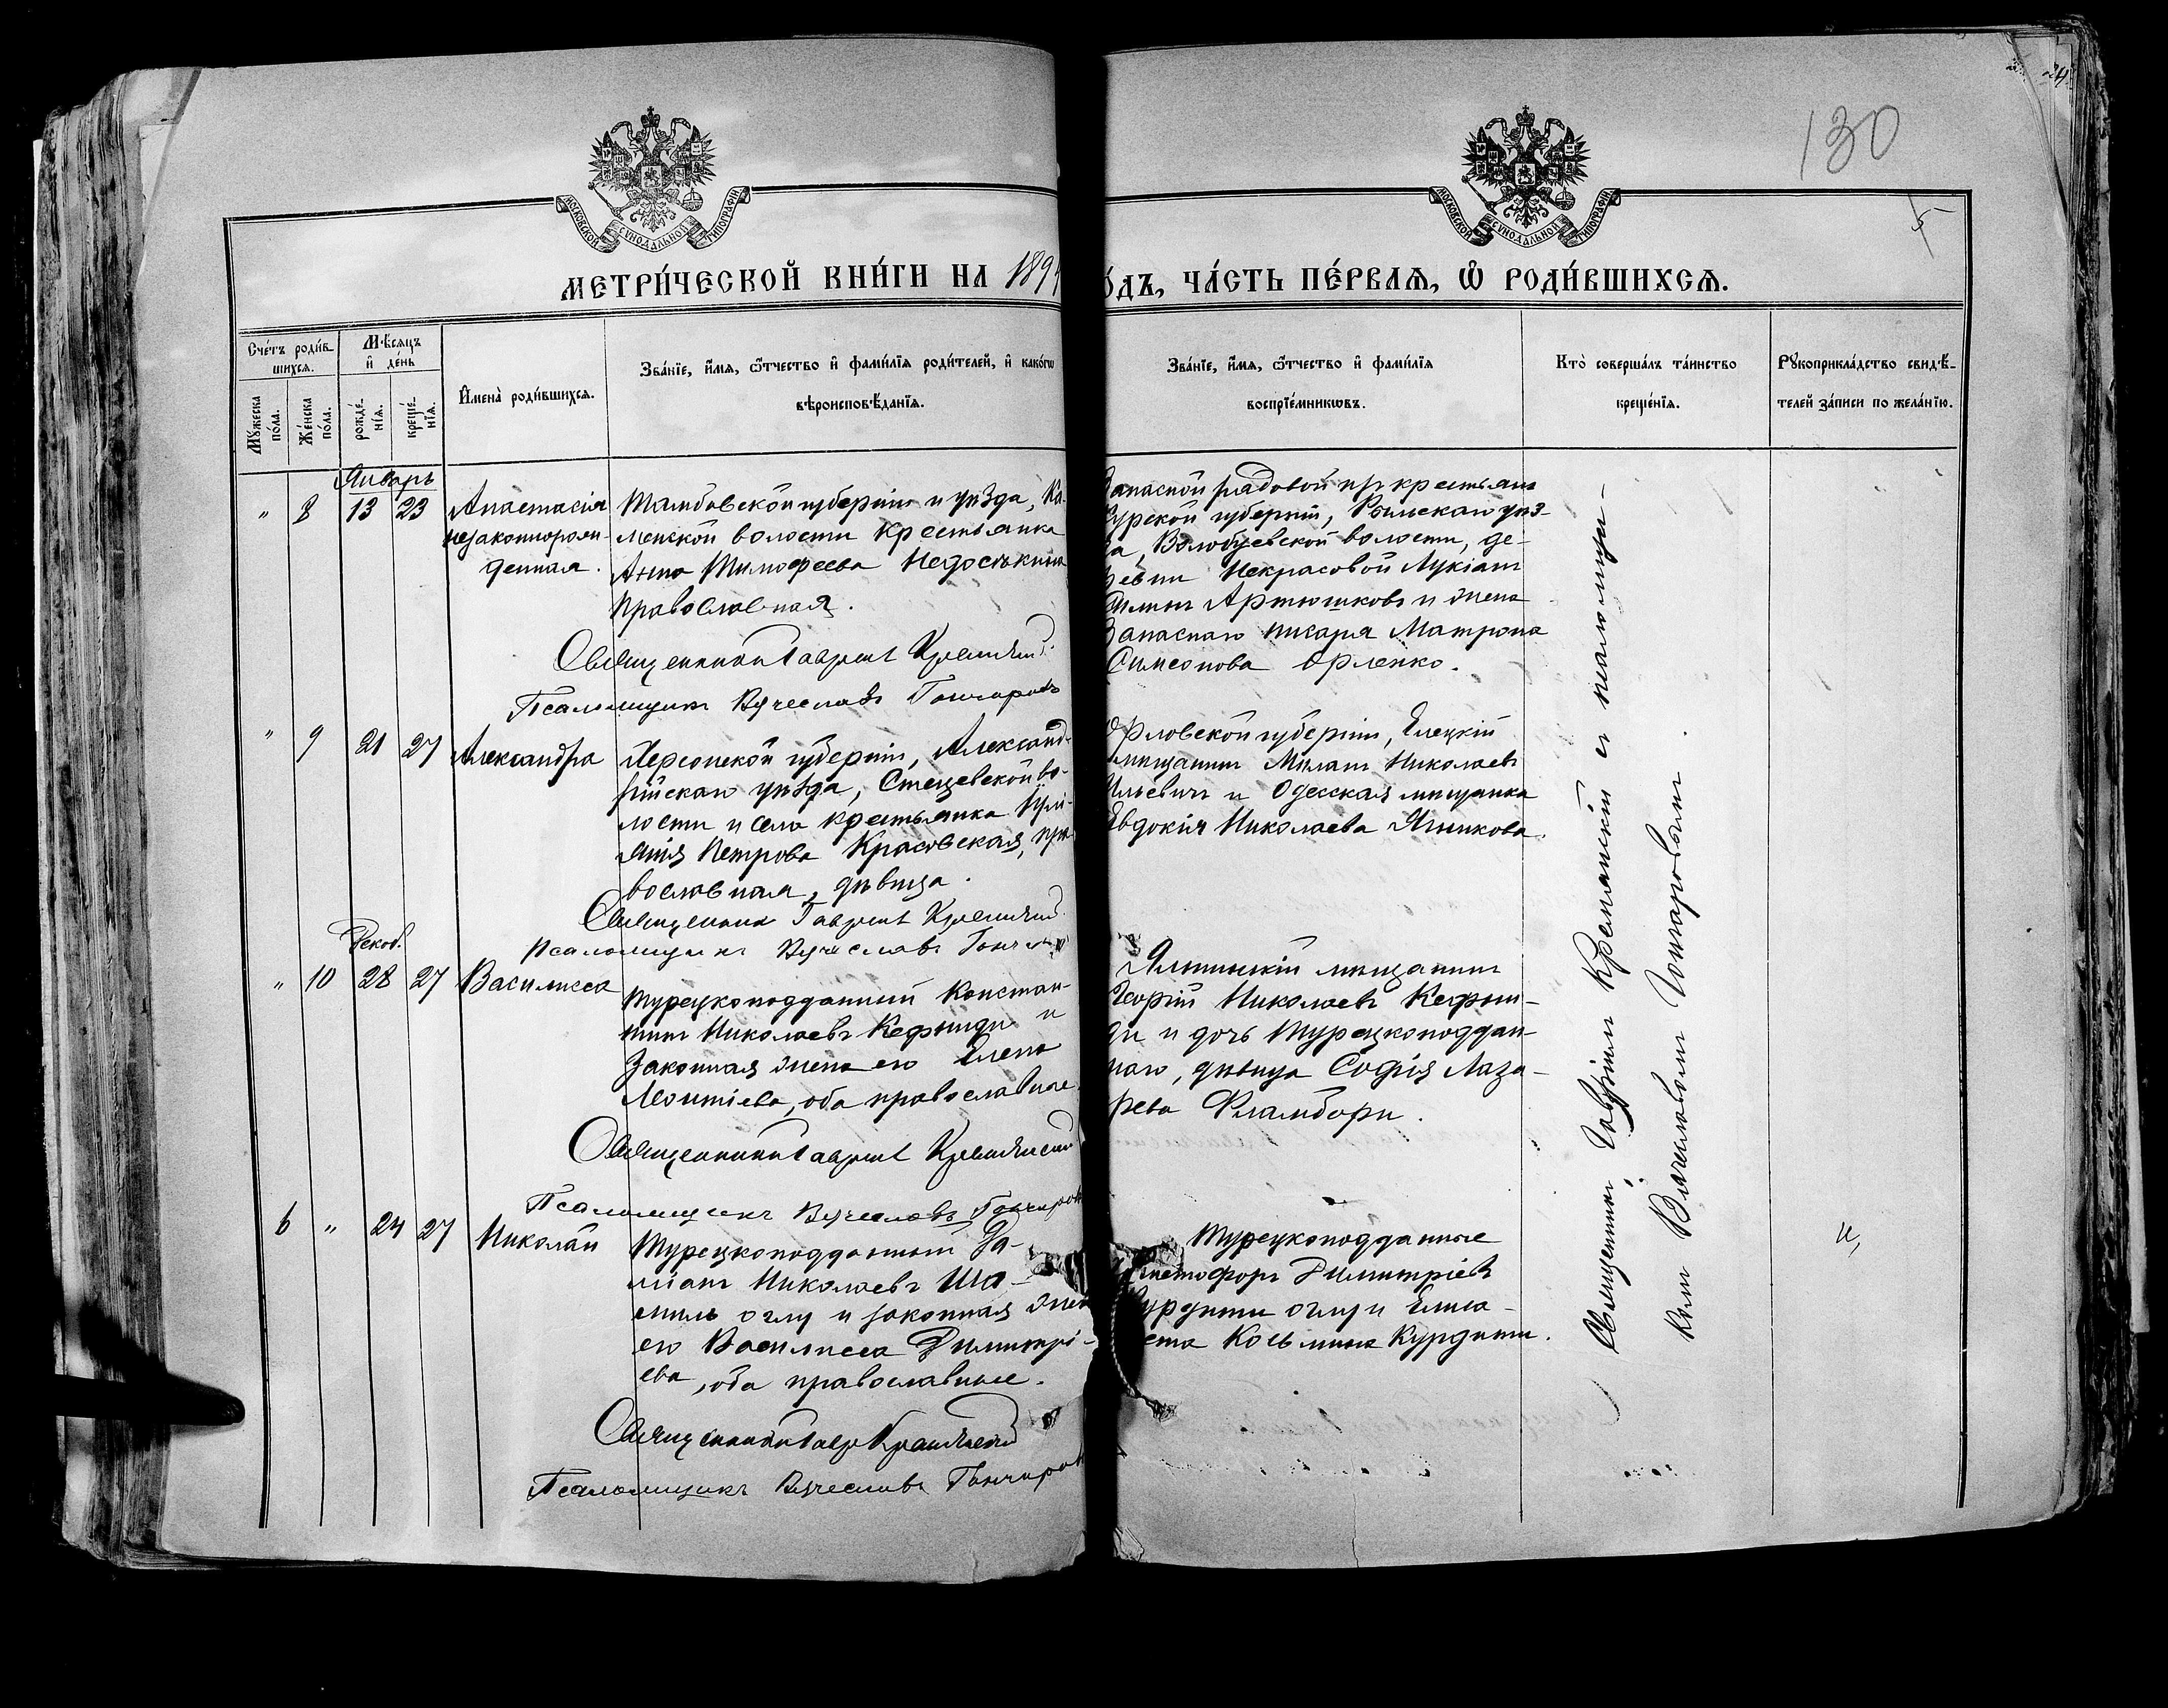 130
5
МОСКОВСКОЙ СУНОДАЛЬНОЙ ТИПОГРАФІИ
МОСКОВСКОЙ СУНОДАЛЬНОЙ ТИПОГРАФІИ
МЕТРИ́ЧЕСКОЙ КНИ́ГИ НА 189
ОДЪ, ЧА́СТЬ ПЕ́РВАЯ, Ѿ РОДИ́ВШИХСЯ.
Сче́тъ роди́в-
шихся.
Мꙋ́жеска по́ла.
Же́нска по́ла.
Мѣ́сяцъ
и҆ де́нь
рожде́-
нїя.
креще́-
нїя.
И҆мена̀ роди́вшихся.
Зва́нїе, и҆́мя, ѻ҆́тчество и҆ фами́лїя роди́телей, и҆ како́гѡ
вѣроисповѣ́данїя.
Зва́нїе, и҆́мя, ѻ҆́тчество и҆ фами́лїя
воспрїе́мникѡвъ.
Кто̀ соверша́лъ та́инство
креще́нїя.
Рꙋкоприкла́дство свидѣ́-
телей за́писи по жела́нїю.
Январь
" 8 13 23
Анастасія
незаконнорож-
денная.
Тамбовской губерніи и уѣзда, Ка-
менской волости крестьянка
Анна Тимофеева Недоськина
православная.
Священникъ Гавріилъ Кремянскій
Псаломщикъ Вячеславъ Гончаровъ
Запасной рядовой изъ крестьянъ
Курской губерніи, Рыльскаго уѣз-
да, волости, де-
ревни Некрасовой Лукіанъ
Артюшковъ и жена
Запаснаго писаря Матрона
Симеонова Орленко.
" 9 21 27
Александра
Херсонской губерніи, Александ-
рійскаго уѣзда, во-
лости и села крестьянка Іулі-
анія Петрова Красовская, пра-
вославная, дѣвица.
Священникъ Гавріилъ Кремянскій
Псаломщикъ Вячеславъ Гончаровъ
Орловской губерніи, Елецкій
мѣщанинъ Николаевъ
Ильевичъ и Одесская мѣщанка
Евдокія Николаева
Декаб.
" 10 28 27
Василисса
Турецкоподданный Констан-
тинъ Николаевъ Кефыиди и
законная жена его Елена
Леонтіева, оба православные.
Священникъ Гавріилъ Кремянскій
Псаломщикъ Вячеславъ Гончаровъ
Ялтинскій мѣщанинъ
Георгій Николаевъ Кефыи-
ди и дочь Турецкоподдан-
наго, дѣвица Софія Лаза-
рева Фламбори.
6 " 24 27
Николай
Турецкоподданный Да-
міанъ Николаевъ Ша-
миль оглу и законная жена
его Василисса Димитрі-
ева, оба православные.
Священникъ Гавр Кремянскій
Псаломщикъ Вячеславъ Гончаровъ
Турецкоподданные
Димитріевъ
Курдити оглу и Елиса-
вета Косьмина Курдити.
Священникъ Гавріилъ Кремянскій съ псаломщи-
комъ Вячеславомъ Гончаровымъ.